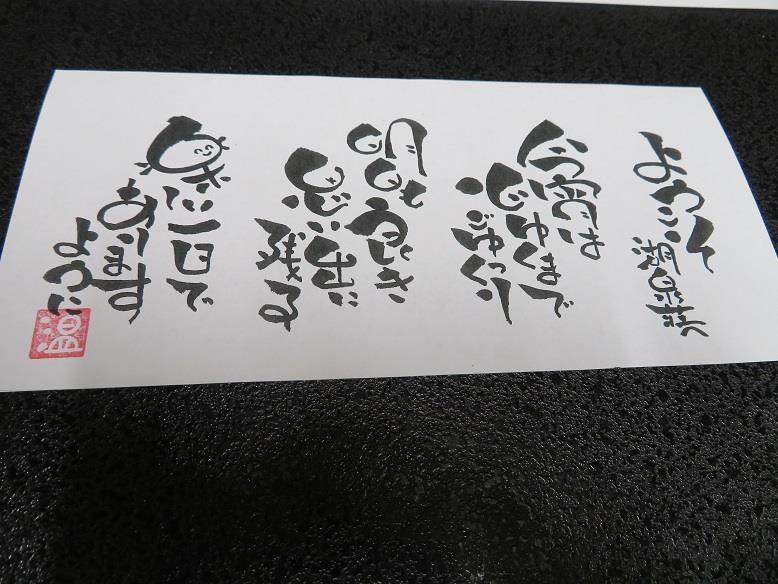 ようこそ
今宵は
心ゆくまで
ごゆっくり
明日も
思い出に
残る
一日で
あります
ように